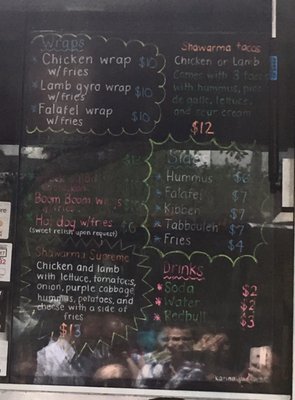 Wraps
* Chicken wrap $10
w/fries
* Lamb gyro wrap $10
w/fries
* Falafel wrap $10
w/fries
Shawarma tacos
Chicken or Lamb
Comes with 3 tacos
with hummus, pico
de galle, lettuce,
and sour cream
$12
Boom Boom Wings
Hot dog w/fries $6
(sweet relish upon request)
Shawarma Supreme
Chicken and lamb
with lettuce, tomatoes,
onion, purple cabbage
hummus, potatoes, and
cheese with a side of
fries
$13
Sides
* Hummus $6
* Falafel $7
* Kibbeh $7
* Tabbouleh $7
* Fries $4
Drinks
* Soda $2
* Water $2
* Redbull $3